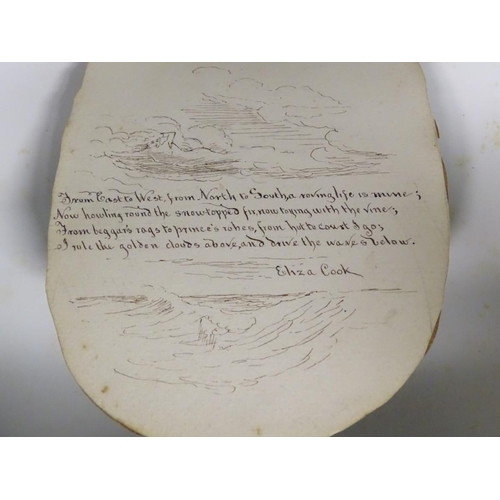 From East to West, from North to South a roving life is mine;
Now howling round the snow topped fir, now toying with the vine;
From beggar's rags to prince's robes, from hut to court I go;
I rule the golden clouds above, and drive the waves below.
Eliza Cook